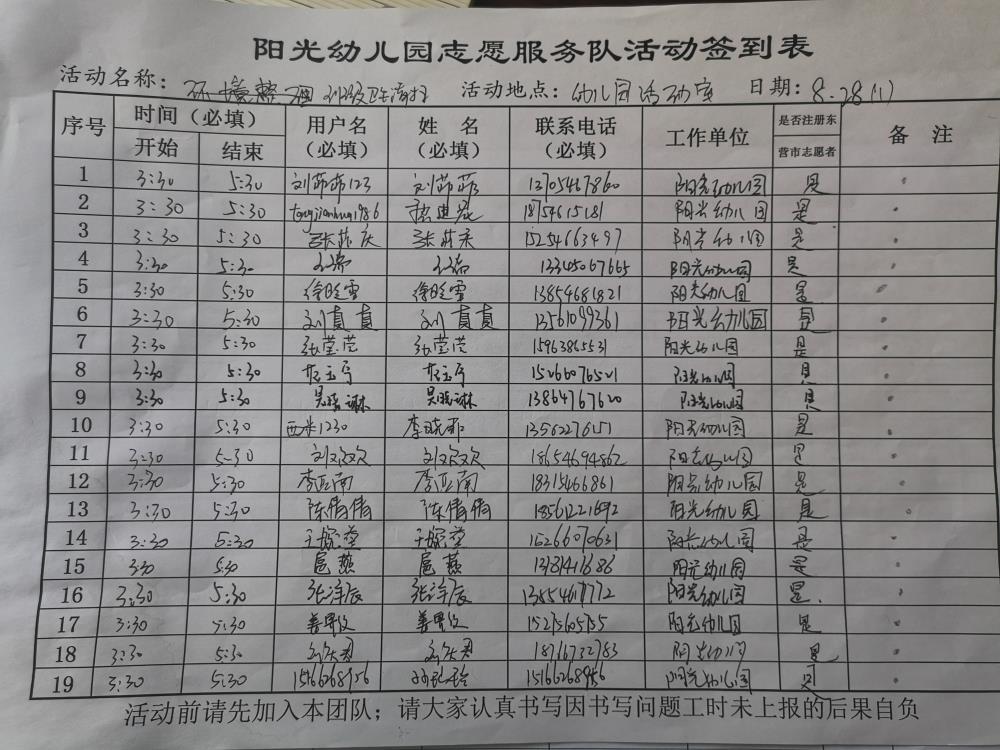 阳光幼儿园志愿服务队活动签到表
活动名称：环境整理 班级卫生清扫 活动地点：幼儿园活动室 日期：8.28(1)
序号 时间（必填） 用户名（必填） 姓 名（必填） 联系电话（必填） 工作单位 是否注册东营市志愿者 备 注
开始 结束
1 3:30 5:30 刘茚茚123 刘茚茚 13705467860 阳光幼儿园 是
2 3:30 5:30 阳光幼儿园 是
3 3:30 5:30 15254663497 阳光幼儿园 是
4 3:30 5:30 阳光幼儿园 是
5 3:30 5:30 徐晓雪 徐晓雪 13854681821 阳光幼儿园 是
6 3:30 5:30 刘真真 刘真真 13561099361 阳光幼儿园 是
7 3:30 5:30 张莹莹 张莹莹 15963865531 阳光幼儿园 是
8 3:30 5:30 15266076521 阳光幼儿园 是
9 3:30 5:30 吴晓琳 吴晓琳 13864767620 阳光幼儿园 是
10 3:30 5:30 西米1230 李晓那 阳光幼儿园 是
11 3:30 5:30 刘欢欢 刘欢欢 18654694862 阳光幼儿园 是
12 3:30 5:30 李亚南 李亚南 18315466861 阳光幼儿园 是
13 3:30 5:30 陈倩倩 陈倩倩 18561221692 阳光幼儿园 是
14 3:30 5:30 王晓莹 王晓莹 16266070631 阳光幼儿园 是
15 3:30 5:30 扈燕 扈燕 阳光幼儿园 是
16 3:30 5:30 张洋辰 张洋辰 阳光幼儿园 是
17 3:30 5:30 阳光幼儿园 是
18 3:30 5:30 18716732783 阳光幼儿园 是
19 3:30 5:30 15166268956 15166268956 阳光幼儿园 是
活动前请先加入本团队；请大家认真书写因书写问题工时未上报的后果自负